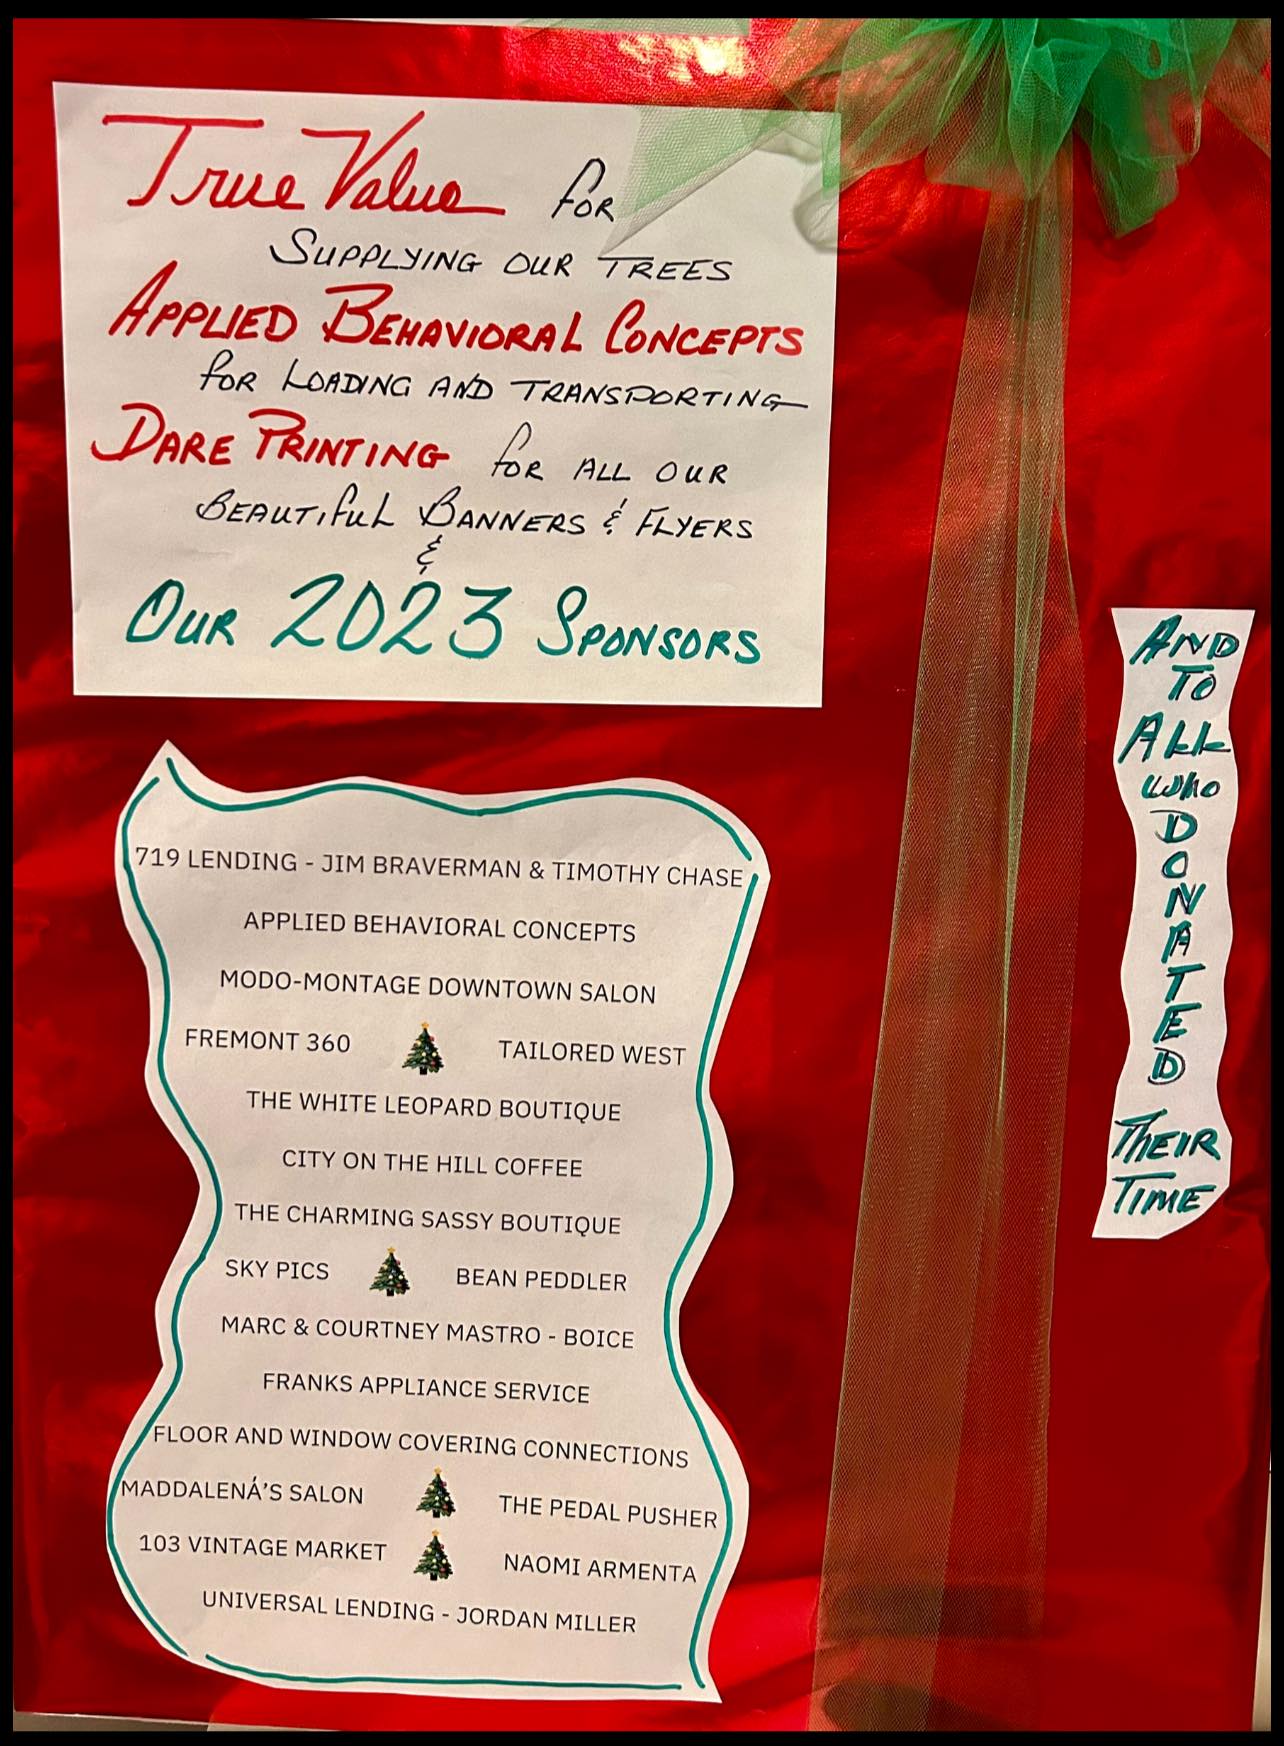 True Value for
SUPPLYING OUR TREES
APPLIED BEHAVIORAL CONCEPTS
for LOADING AND TRANSPORTING
DARE PRINTING for ALL OUR
BEAUTIFUL BANNERS & FLYERS
&
OUR 2023 SPONSORS
719 LENDING - JIM BRAVERMAN & TIMOTHY CHASE
APPLIED BEHAVIORAL CONCEPTS
MODO-MONTAGE DOWNTOWN SALON
FREMONT 360 TAILORED WEST
THE WHITE LEOPARD BOUTIQUE
CITY ON THE HILL COFFEE
THE CHARMING SASSY BOUTIQUE
SKY PICS BEAN PEDDLER
MARC & COURTNEY MASTRO - BOICE
FRANKS APPLIANCE SERVICE
FLOOR AND WINDOW COVERING CONNECTIONS
MADDALENÁ'S SALON THE PEDAL PUSHER
103 VINTAGE MARKET NAOMI ARMENTA
UNIVERSAL LENDING - JORDAN MILLER
AND
TO
ALL
WHO
DONATED
THEIR
TIME